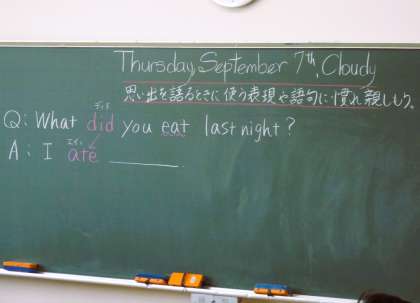 Thursday, September 7th, Cloudy
思い出を語るときに使う表現や語句に慣れ親しもう。
ディド
Q: What did you eat last night?
エイト
A: I ate